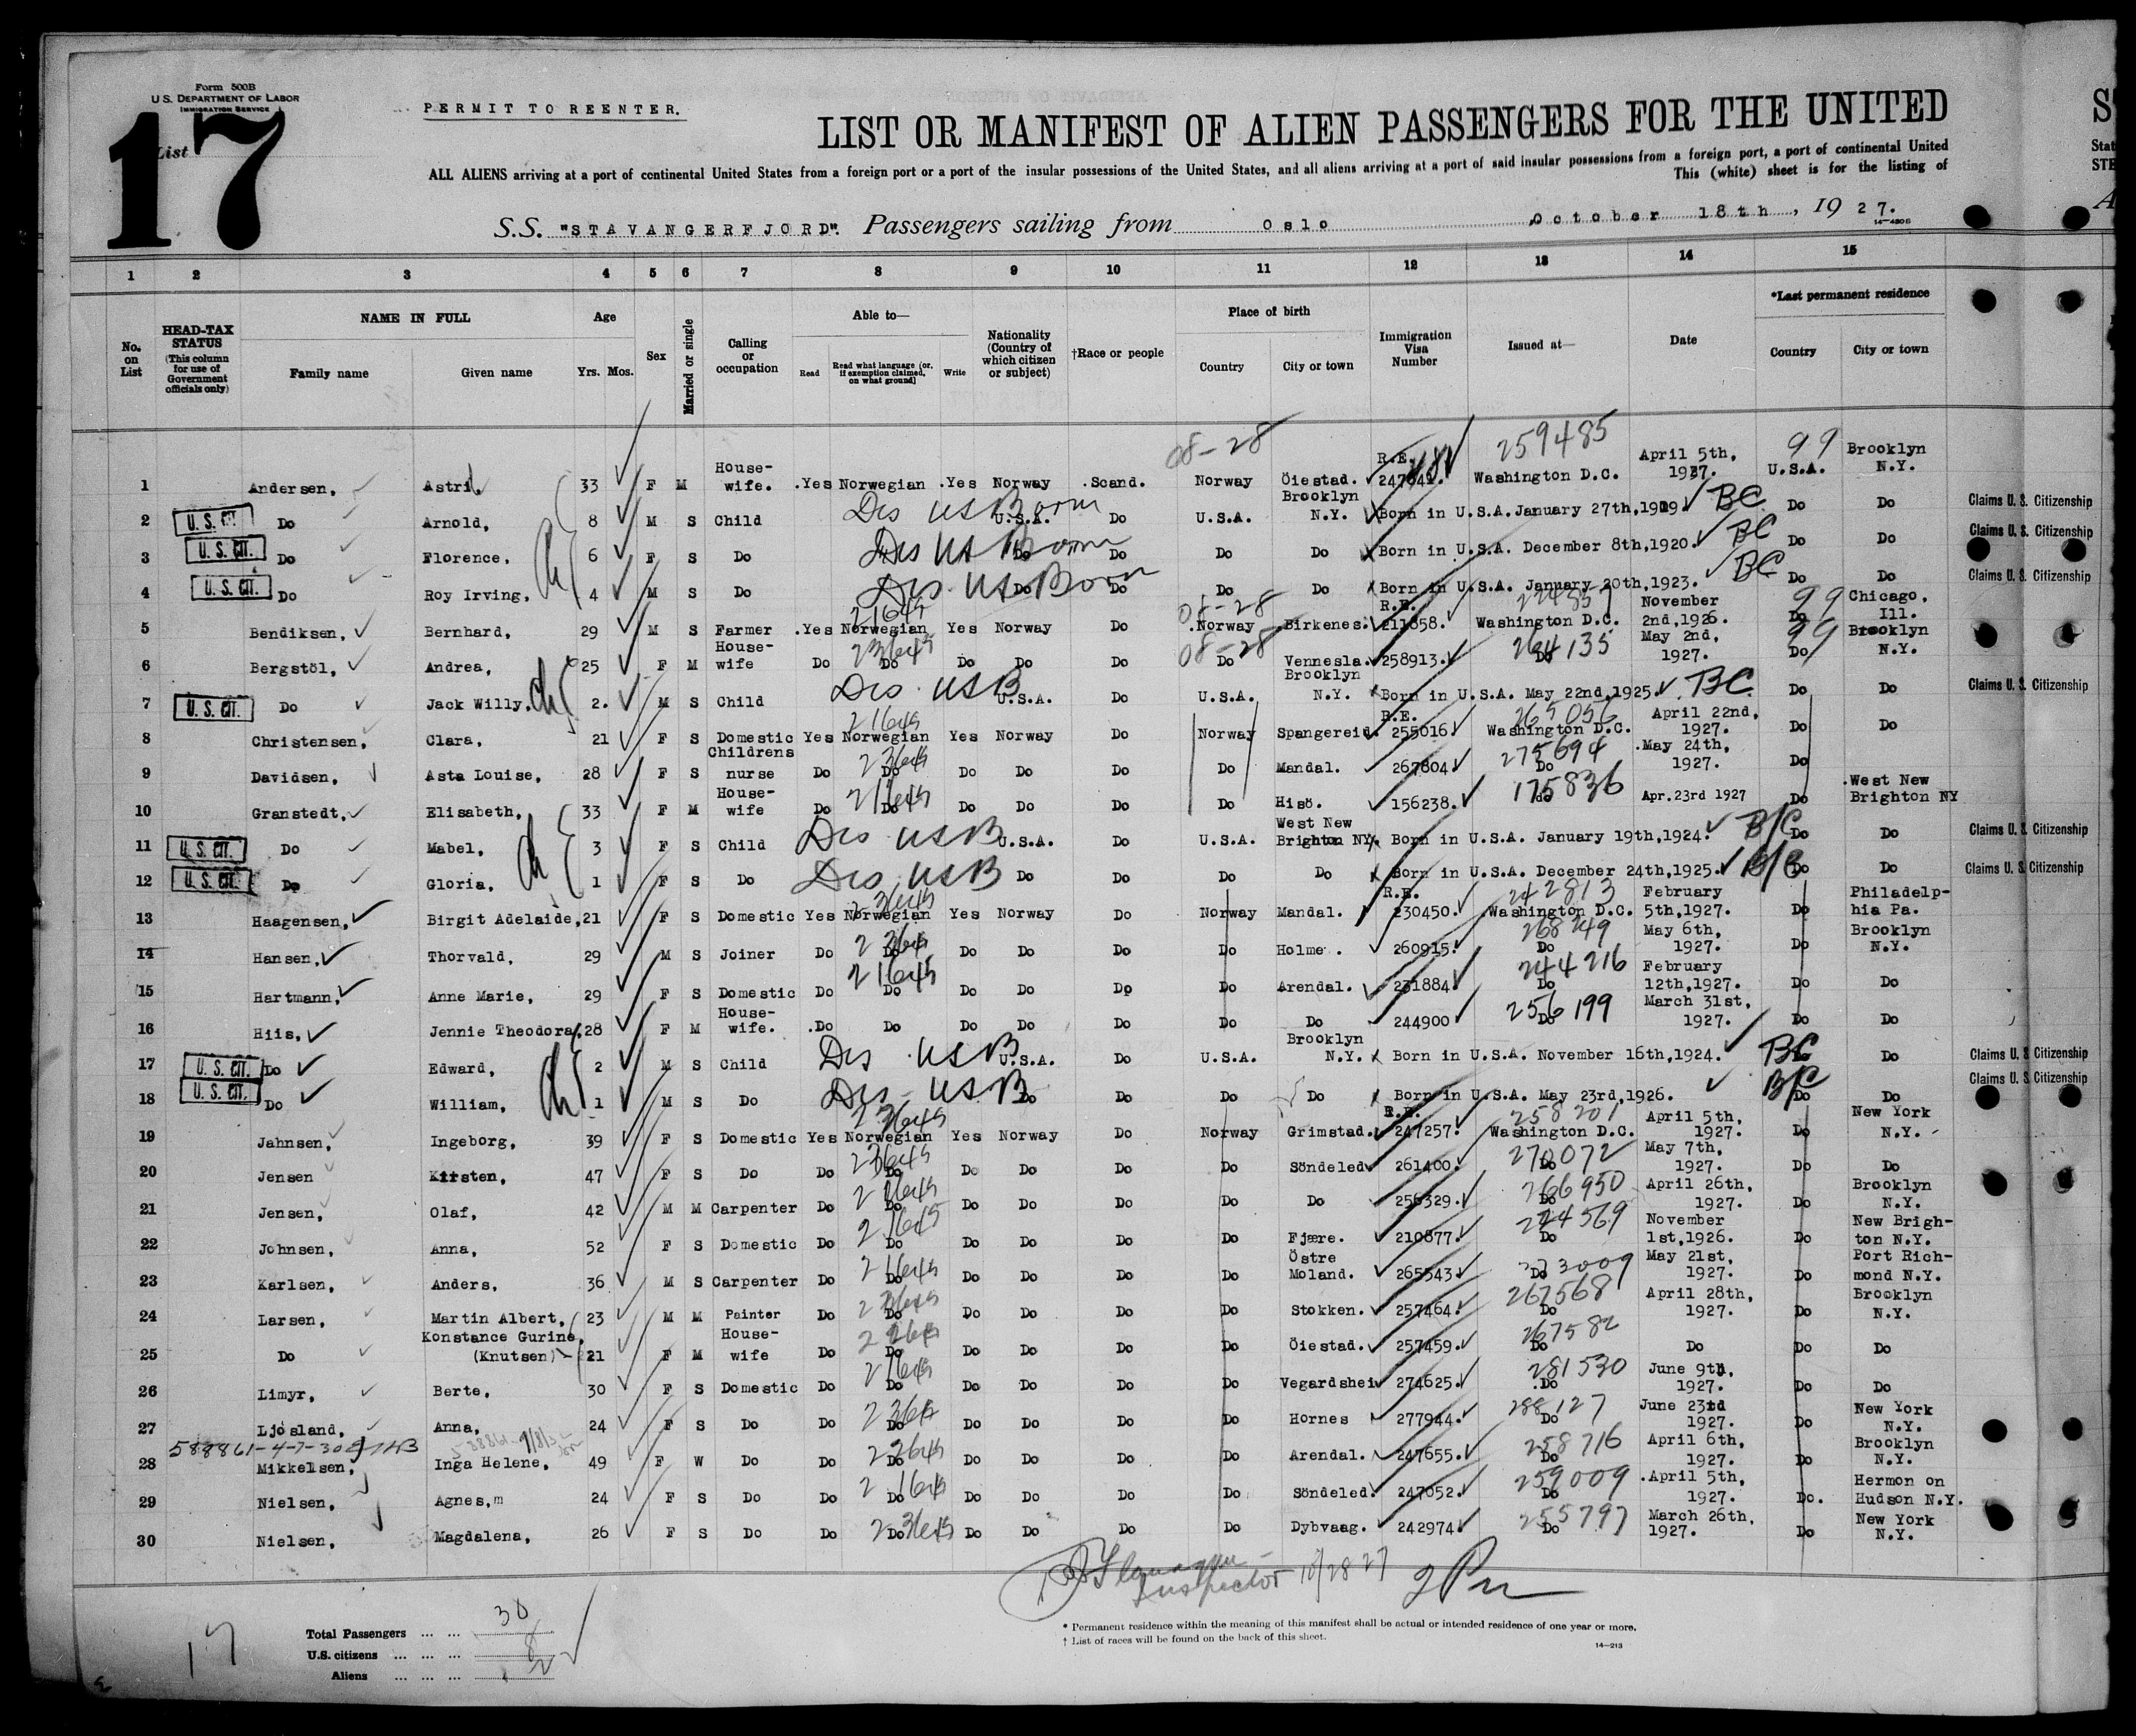 Form 500B
U.S. DEPARTMENT OF LABOR
IMMIGRATION SERVICE
List 17
PERMIT TO REENTER.
LIST OR MANIFEST OF ALIEN PASSENGERS FOR THE UNITED
ALL ALIENS arriving at a port of continental United States from a foreign port or a port of the insular possessions of the United States, and all aliens arriving at a port of said insular possessions from a foreign port, a port of continental United
This (white) sheet is for the listing of
S.S. "STAVANGERFJORD". Passengers sailing from Oslo, October 18th, 1927.
14-480B
1 2 3 4 5 6 7 8 9 10 11 12 13 14 15
No. on List
HEAD-TAX STATUS (This column for use of Government officials only)
NAME IN FULL Family name Given name
Age Yrs. Mos.
Sex
Married or single
Calling or occupation
Able to— Read Read what language (or, if exemption claimed, on what ground) Write
Nationality (Country of which citizen or subject)
†Race or people
Place of birth Country City or town
Immigration Visa Number
Issued at—
Date
*Last permanent residence Country City or town
1 Andersen, Astri 33 F M House-wife. Yes Norwegian Yes Norway Scand. 08-28 Norway Öiestad. R.E. 247641. 259485 Washington D.C. April 5th, 1927. 99 U.S.A. Brooklyn N.Y.
2 U.S. CIT. Do Arnold, 8 M S Child Des US Born U.S.A. Do U.S.A. Brooklyn N.Y. Born in U.S.A. January 27th, 1919 BC Do Do Claims U.S. Citizenship
3 U.S. CIT. Do Florence, 6 F S Do Des US Born Do Do Do Do Born in U.S.A. December 8th, 1920. BC Do Do Claims U.S. Citizenship
4 U.S. CIT. Do Roy Irving, 4 M S Do Des US Born Do Do Do Do Born in U.S.A. January 20th, 1923. BC Do Do Claims U.S. Citizenship
5 Bendiksen, Bernhard, 29 M S Farmer Yes Norwegian Yes Norway Do 08-28 Norway Birkenes. R.E. 211858. Washington D.C. November 2nd, 1926. 99 Do Chicago, Ill.
6 Bergstöl, Andrea, 25 F M House-wife Do Do Do Do Do 08-28 Do Vennesla. 258913. 264135 Do May 2nd, 1927. 99 Do Brooklyn N.Y.
7 U.S. CIT. Do Jack Willy, 2. M S Child Des USB U.S.A. Do U.S.A. Brooklyn N.Y. Born in U.S.A. May 22nd, 1925. BC Do Do Claims U.S. Citizenship
8 Christensen, Clara, 21 F S Domestic Yes Norwegian Yes Norway Do Norway Spangereid. R.E. 255016 265056 Washington D.C. April 22nd, 1927. Do Do
9 Davidsen, Asta Louise, 28 F S Childrens nurse Do Do Do Do Do Do Mandal. 267804. 275694 Do May 24th, 1927. Do
10 Granstedt, Elisabeth, 33 F M House-wife Do Do Do Do Do Do Hisö. 156238. 175836 do Apr. 23rd 1927 Do West New Brighton NY
11 U.S. CIT. Do Mabel, 3 F S Child Des USB U.S.A. Do U.S.A. West New Brighton NY. Born in U.S.A. January 19th, 1924. B/C Do Do Claims U.S. Citizenship
12 U.S. CIT. Do Gloria, 1 F S Do Des USB Do Do Do Do Born in U.S.A. December 24th, 1925. B/C Do Do Claims U.S. Citizenship
13 Haagensen, Birgit Adelaide, 21 F S Domestic Yes Norwegian Yes Norway Do Norway Mandal. R.E. 230450. 242813 Washington D.C. February 5th, 1927. Do Philadelp-hia Pa.
14 Hansen, Thorvald, 29 M S Joiner Do Do Do Do Do Do Holme. 260915. 268249 Do May 6th, 1927. Do Brooklyn N.Y.
15 Hartmann, Anne Marie, 29 F S Domestic Do Do Do Do Do Do Arendal. 231884. 244216 Do February 12th, 1927. Do Do
16 Hiis, Jennie Theodora, 28 F M House-wife. Do Do Do Do Do Do Do 244900 256199 Do March 31st, 1927. Do Do
17 U.S. CIT. Do Edward, 2 M S Child Des USB U.S.A. Do U.S.A. Brooklyn N.Y. Born in U.S.A. November 16th, 1924. BC Do Claims U.S. Citizenship
18 U.S. CIT. Do William, 1 M S Do Des USB Do Do Do Do Born in U.S.A. May 23rd, 1926. B/C Do Do Claims U.S. Citizenship
19 Jahnsen, Ingeborg, 39 F S Domestic Yes Norwegian Yes Norway Do Norway Grimstad. R.E. 247257. 258201 Washington D.C. April 5th, 1927. Do New York N.Y.
20 Jensen Kirsten, 47 F S Do Do Do Do Do Do Do Söndeled 261400. 270072 Do May 7th, 1927. Do Do
21 Jensen, Olaf, 42 M M Carpenter Do Do Do Do Do Do Do 256329. 266950 Do April 26th, 1927. Do Brooklyn N.Y.
22 Johnsen, Anna, 52 F S Domestic Do Do Do Do Do Do Fjære. 210877. 224569 Do November 1st, 1926. Do New Brigh-ton N.Y.
23 Karlsen, Anders, 36 M S Carpenter Do Do Do Do Do Do Östre Moland. 265543. Do May 21st, 1927. Do Port Rich-mond N.Y.
24 Larsen, Martin Albert, 23 M M Painter Do Do Do Do Do Do Stokken. 257464. 267568 Do April 28th, 1927. Do Brooklyn N.Y.
25 Do Konstance Gurine, (Knutsen) 21 F M House-wife Do Do Do Do Do Do Öiestad. 257459. 267582 Do Do Do Do
26 Limyr, Berte, 30 F S Domestic Do Do Do Do Do Do Vegardshei 274625. 281530 Do June 9th, 1927. Do Do
27 Ljösland, Anna, 24 F S Do Do Do Do Do Do Do Hornes 277944. 288127 Do June 23rd 1927. Do New York N.Y.
588861-4-7-30
28 Mikkelsen, Inga Helene, 49 F W Do Do Do Do Do Do Do Arendal. 247655. 258716 Do April 6th, 1927. Do Brooklyn N.Y.
29 Nielsen, Agnes, m 24 F S Do Do Do Do Do Do Do Söndeled. 247052. 259009 Do April 5th, 1927. Do. Hermon on Hudson N.Y.
30 Nielsen, Magdalena, 26 F S Do Do Do Do Do Do Do Dybvaag. 242974. 255797 Do March 26th, 1927. Do New York N.Y.
Inspector 10/28 27
17
Total Passengers 30
U.S. citizens 8
Aliens 22
* Permanent residence within the meaning of this manifest shall be actual or intended residence of one year or more.
† List of races will be found on the back of this sheet.
14-213